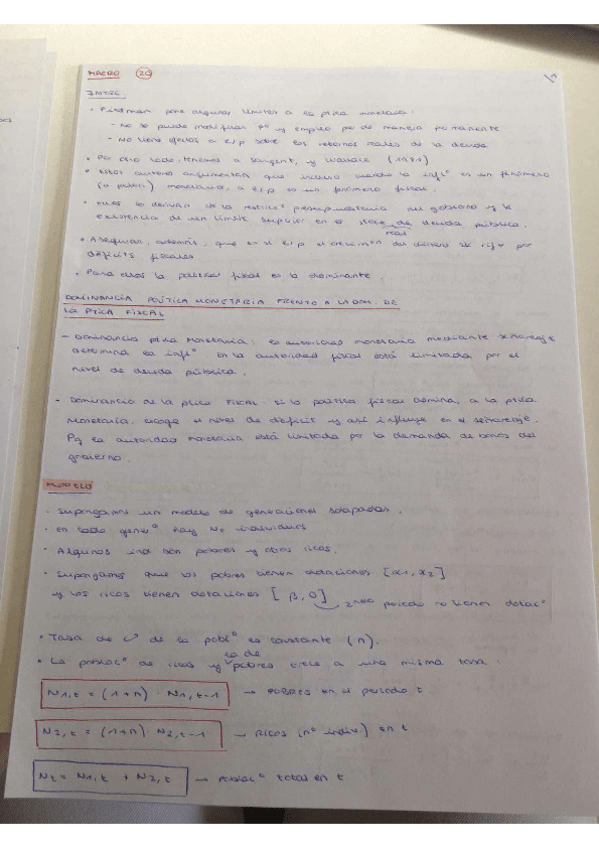 MACRO 20
INTRO.
• Friedman pone algunos límites a la ptica monetaria:
- No se puede modificar y empleo pe de manera permanente
- No tiene efectos a l/p sobre los retornos reales de la deuda.
• Por otro lado, tenemos a Sargent, y Wallace (1981)
• Estos autores argumentan que incluso cuando la inflº es un fenómeno
monetario, a l/p es un fenómeno fiscal.
• Ellos lo derivan de la restricº presupuestaria del gobierno y la
existencia de un límite superior en el stock de deuda pública.
real
• Aseguran, además, que en el l/p el crecimien del dinero se rige por
déficits fiscales.
• Para ellos la política fiscal es la dominante.
DOMINANCIA POLÍTICA MONETARIA FRENTE A LA DOM. DE
LA PTICA FISCAL
- Dominancia ptica Monetaria: la autoridad monetaria mediante señoreaje
determina la inflº. En la autoridad fiscal está limitada por el
nivel de deuda pública.
- Dominancia de la ptica FISCAL: si la política fiscal domina, a la ptica
Monetaria, escoge el nivel de déficit y así influye en el señoreaje.
Pq la autoridad monetaria está limitada por la demanda de bonos del
gobierno.
MODELO
• Supongamos un modelo de generaciones solapadas.
• En cada generº hay Nt individuos
• Algunos ind son pobres y otros ricos.
• Supongamos que los pobres tienen dotaciones [α1, α2]
y los ricos tienen dotaciones [β, 0] periodo no tienen dotacº
• Tasa de cº de la poblº es constante (n).
• La poblacº de ricos y la de pobres crece a una misma tasa:
N1,t = (1+n) · N1,t-1 → POBRES en el periodo t.
N2,t = (1+n) · N2,t-1 → Ricos (nº indiv.) en t
Nt = N1,t + N2,t → Poblacº total en t